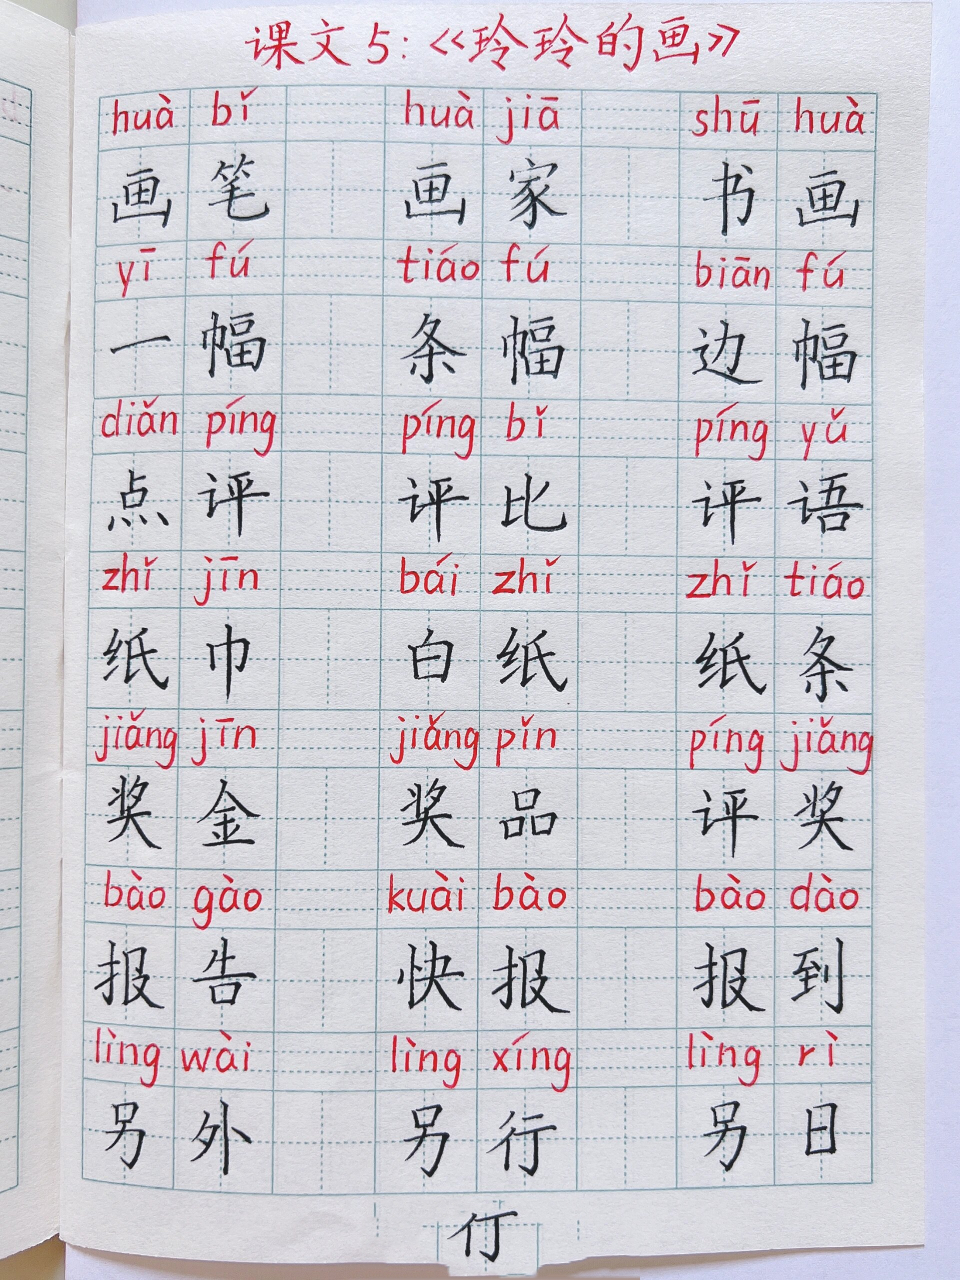 课文5:《玲玲的画》
huà bǐ huà jiā shū huà
画笔 画家 书画
yī fú tiáo fú biān fú
一幅 条幅 边幅
diǎn píng píng bǐ píng yǔ
点评 评比 评语
zhǐ jīn bái zhǐ zhǐ tiáo
纸巾 白纸 纸条
jiǎng jīn jiǎng pǐn píng jiǎng
奖金 奖品 评奖
bào gào kuài bào bào dào
报告 快报 报到
lìng wài lìng xíng lìng rì
另外 另行 另日
仃